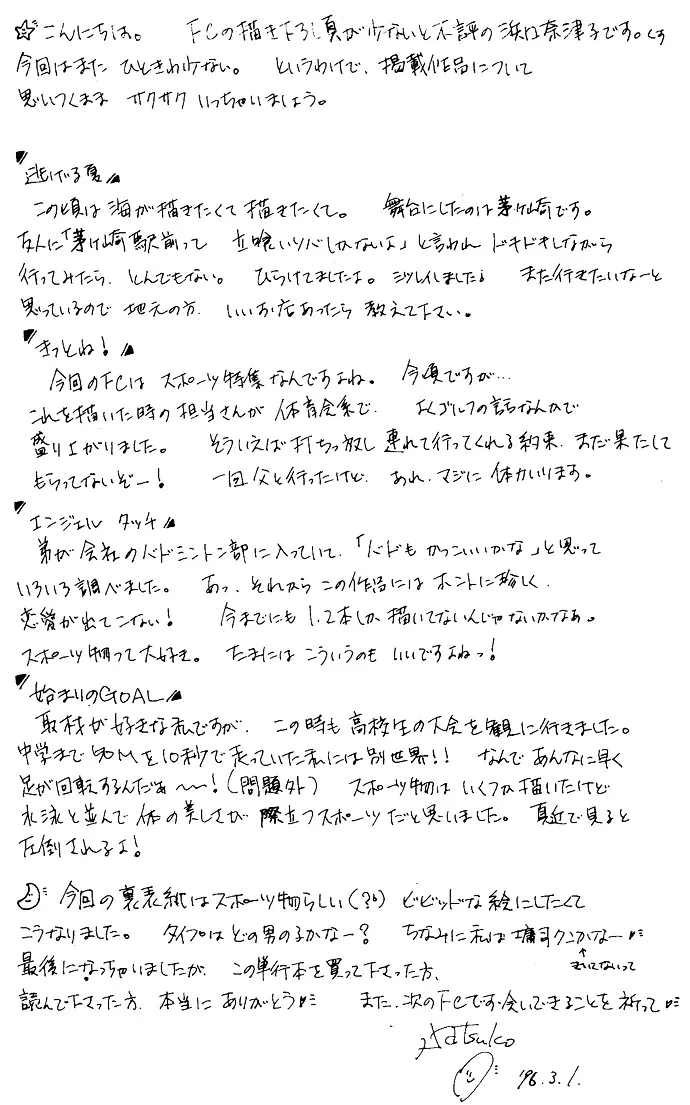 ☆こんにちは。 FCの描き下ろし頁が少ないと不評の浜口奈津子です。くすっ
今回はまた ひときわ少ない。 というわけで、掲載作品について
思いつくまま サクサク いっちゃいましょう。
"逃げる夏"
この頃は海が描きたくて描きたくて。 舞台にしたのは茅ヶ崎です。
友人に「茅ヶ崎駅前って 立喰いソバしかないよ」と言われ ドキドキしながら
行ってみたら、とんでもない。 ひらけてましたよ。シツレイしました。 また行きたいなーと
思っているので 地元の方、いいお店あったら 教えて下さい。
"きっとね!"
今回のFCは スポーツ特集なんですよね。 今頃ですが…
これを描いた時の担当さんが 体育会系で、 よくゴルフの話なんかで
盛り上がりました。 そういえば打ちっ放し 連れて行ってくれる約束、まだ果たして
もらってないぞー! 一回父と行ったけど、あれ、マジに 体力いります。
"エンジェル タッチ"
弟が会社のバドミントン部に入っていて、「バドも かっこいいかな」と思って
いろいろ調べました。 あっ、それから この作品には ホントに珍しく、
恋愛が出てこない! 今までにも 1、2本しか描いてないんじゃないかなあ。
スポーツ物って大好き。 たまには こういうのも いいですよねっ!
"始まりのGOAL"
取材が好きな私ですが、この時も 高校生の大会を観に行きました。
中学まで 50Mを10秒で走っていた私には別世界!! なんで あんなに早く
足が回転するんだぁ~~!(問題外) スポーツ物は いくつか描いたけど
水泳と並んで 体の美しさが 際立つスポーツだと思いました。 真近で見ると
圧倒されるよ!
今回の裏表紙はスポーツ物らしい(?)ビビッドな絵にしたくて
こうなりました。 タイプはどの男のるかなー? ちなみに私は 庸司クンかなー
きいてないって
最後になっちゃいましたが、この単行本を買って下さった方、
読んで下さった方、本当に ありがとう また、次のFCでお会いできることを祈って
Natsuko
'96.3.1.